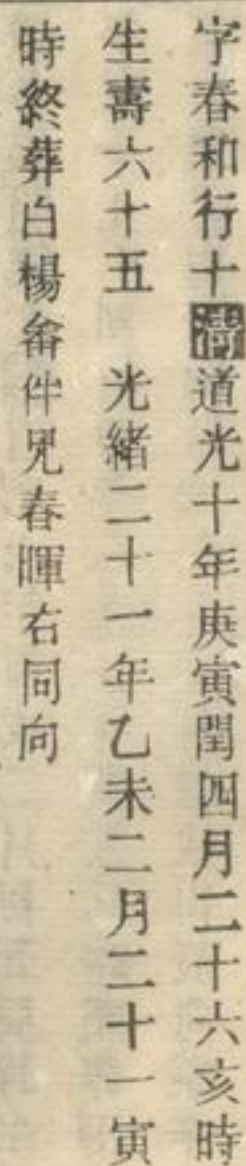 字春和行十清道光十年庚寅閏四月二十六亥時
生壽六十五 光緒二十一年乙未二月二十一寅
時終葬白楊畨伴兄春暉右同向